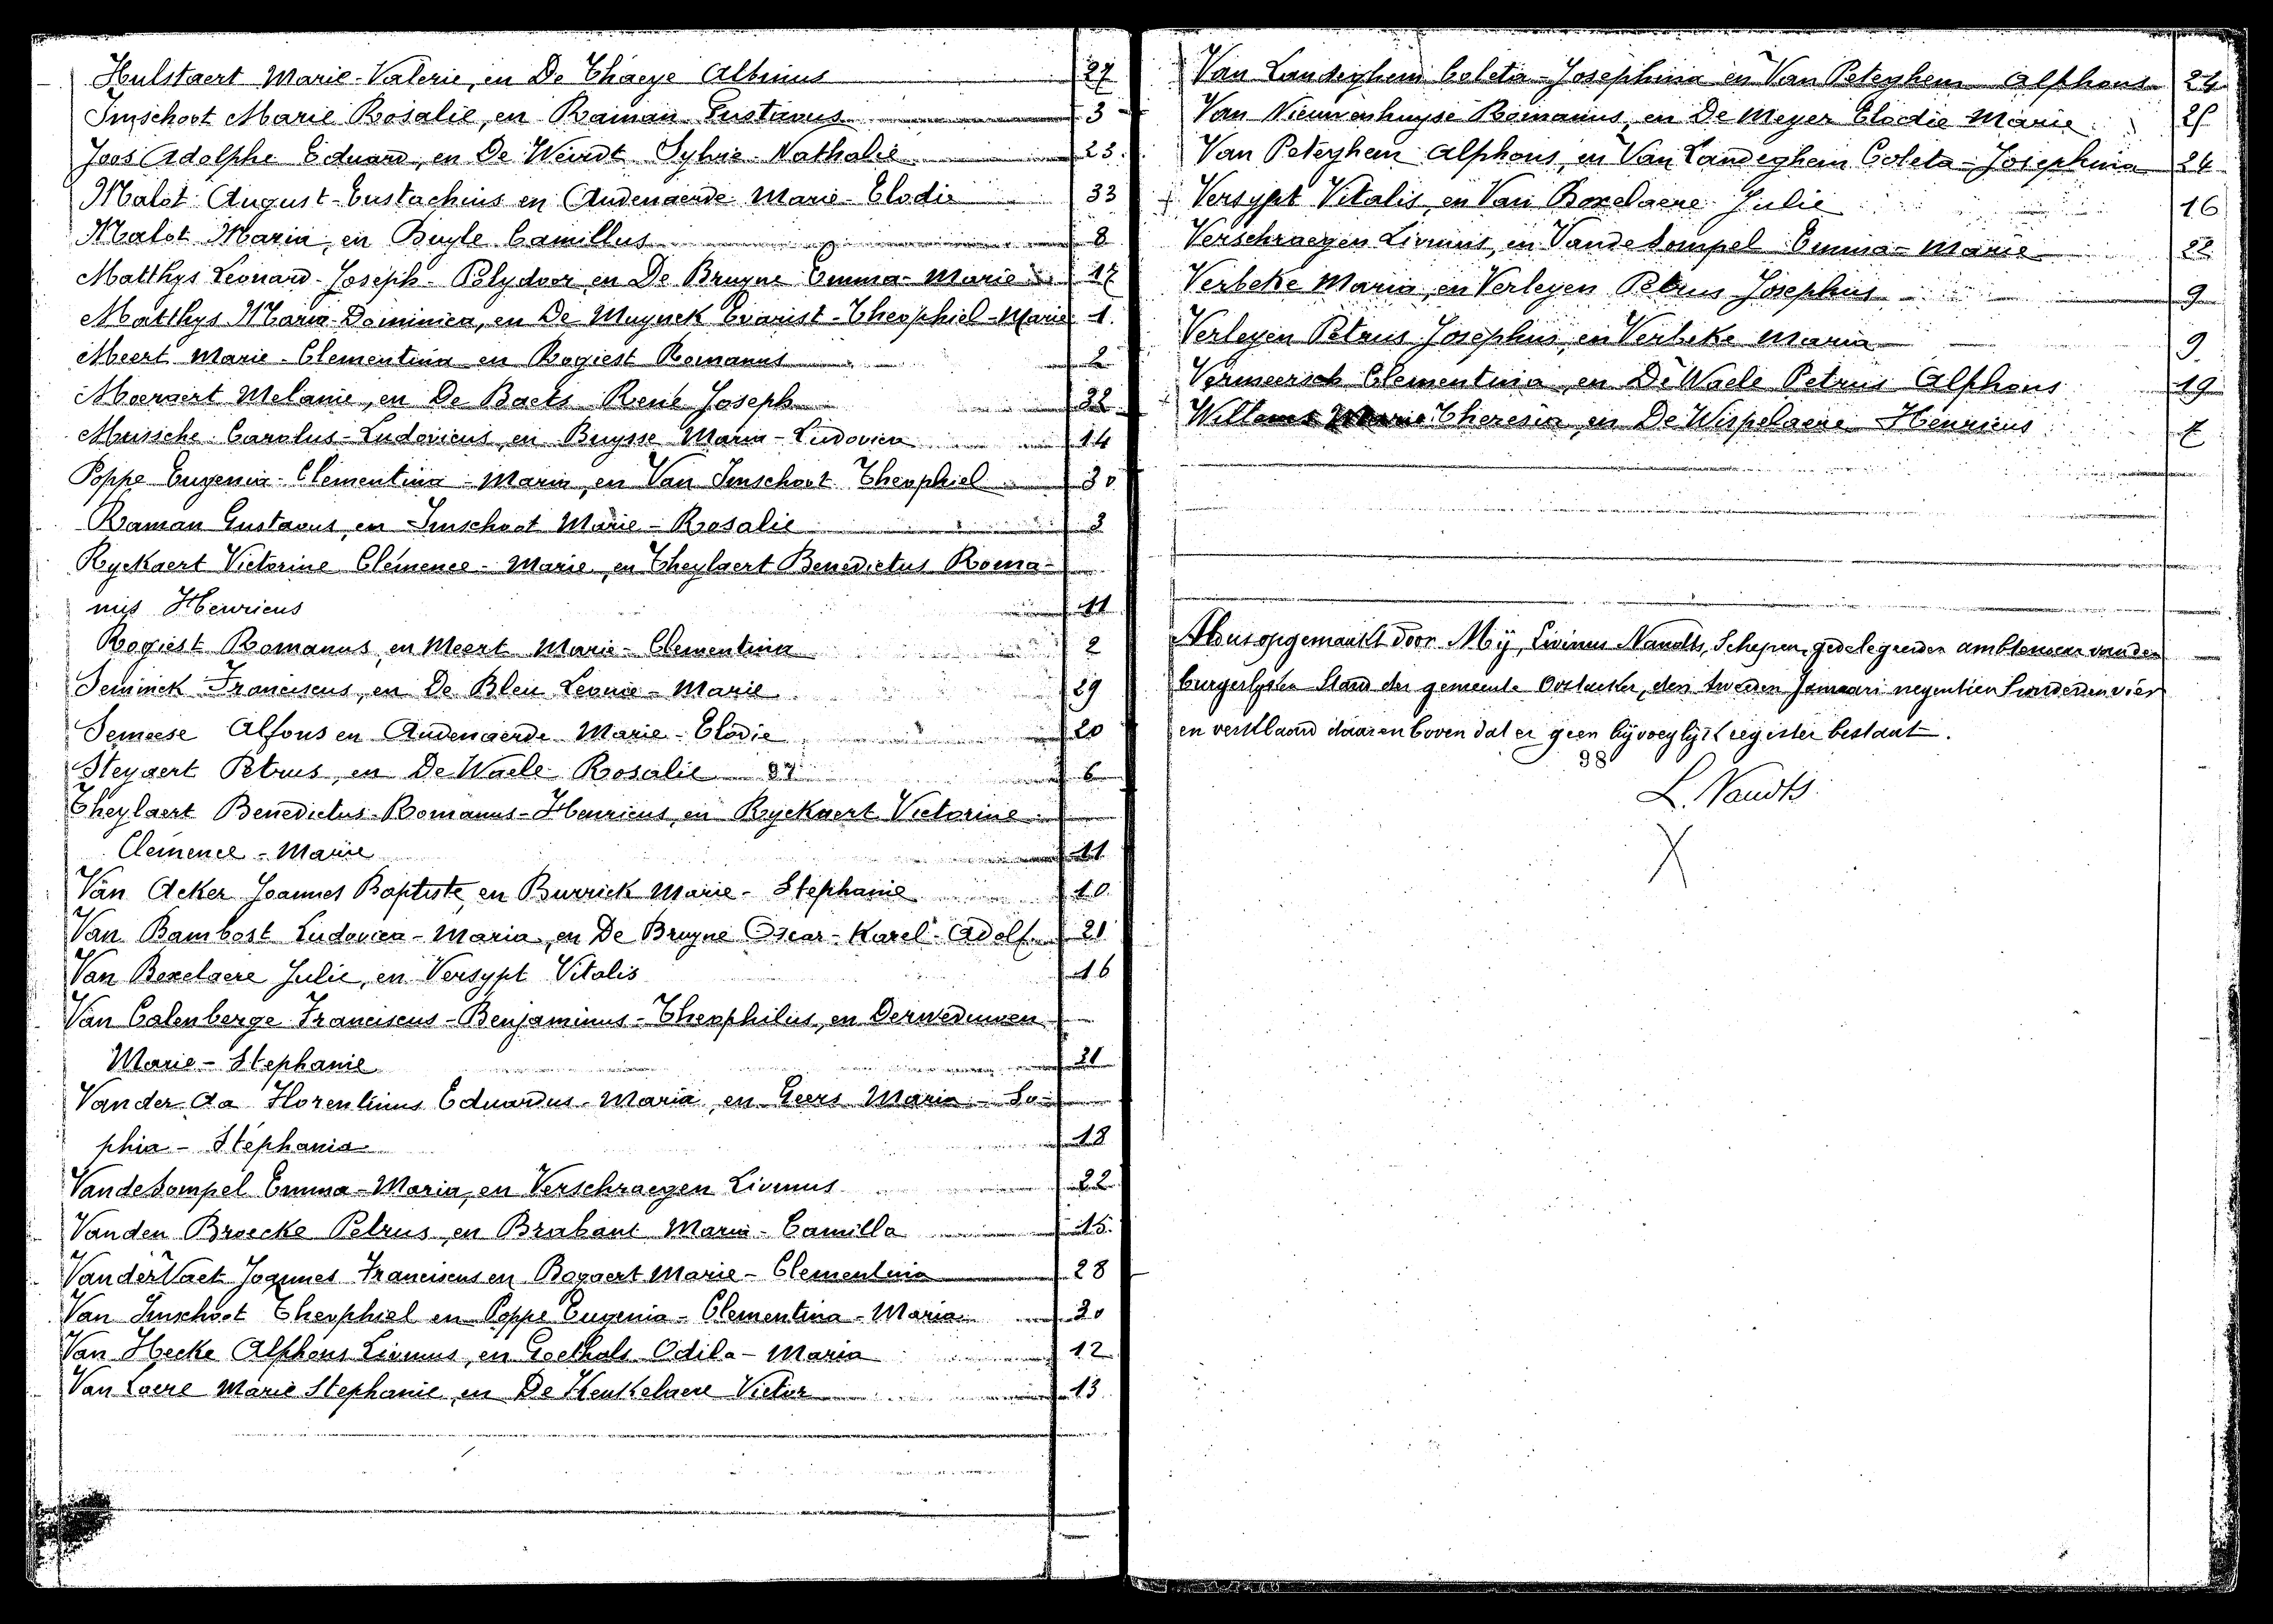 Hulstaert Marie-Valerie, en De Thaeye Albinus 27
Imschoot Marie Rosalie, en Raman Gustavus 3
Joos Adolphe Eduard, en De Weirdt Sylvie Nathalie 23
Malot August-Eustachius en Audenaerde Marie-Elodie 33
Malot Maria, en Buyle Camillus 8
Matthys Leonard-Joseph-Polydoor, en De Bruyne Emma-Marie 17
Matthys Maria-Dominica, en De Muynck Evarist-Theophiel-Marie 1
Meert Marie-Clementina en Rogiest Romanus 2
Moeraert Melanie, en De Baets René Joseph 32
Mussche Carolus-Ludovicus, en Buysse Maria-Ludovica 14
Poppe Eugenia-Clementina-Maria, en Van Imschoot Theophiel 30
Raman Gustavus, en Imschoot Marie-Rosalie 3
Ryckaert Victorine Clémence-Marie, en Theylaert Benedictus Roma-
nus Henricus 11
Rogiest Romanus, en Meert Marie-Clementina 2
Seminck Franciscus, en De Bleu Leonie-Marie 29
Semeese Alfons en Audenaerde Marie-Elodie 20
Steyaert Petrus, en De Waele Rosalie 97 6
Theylaert Benedictus-Romanus-Henricus, en Ryckaert Victorine
Clemence-Marie 11
Van Acker Joannes Baptiste, en Burrick Marie-Stephanie 10
Van Bambost Ludovica-Maria, en De Bruyne Oscar-Karel-Adolf 21
Van Bexelaere Julie, en Versypt Vitalis 16
Van Calenberge Franciscus-Benjaminus-Theophilus, en Derweduwen
Marie-Stephanie 31
Van der Aa Florentinus Eduardus-Maria, en Geers Maria-So-
phia-Stephania 18
Vandesompel Emma-Maria, en Verschraegen Livinus 22
Vanden Broecke Petrus, en Brabant Maria-Camilla 15
Vander Vaet Joannes Franciscus en Bogaert Marie-Clementina 28
Van Imschoot Theophiel en Poppe Eugenia-Clementina-Maria 30
Van Hecke Alphons Livinus, en Goethals Odila-Maria 12
Van Laere Marie Stephanie, en De Keukelaere Victor 13
Van Landeghem Coleta-Josephina en Van Peteghem Alphons 24
Van Nieuwenhuyse Romanus, en De Meyer Elodie Marie 25
Van Peteghem Alphons, en Van Landeghem Coleta-Josephina 24
Versypt Vitalis, en Van Boxelaere Julie 16
Verschraegen Livinus, en Vandesompel Emma-Marie 22
Verbeke Maria, en Verleyen Petrus Josephus 9
Verleyen Petrus Josephus, en Verbeke Maria 9
Vermeersch Clementina, en De Waele Petrus Alphons 19
Willems Marie Theresia, en De Wispelaere Henricus 7
Aldus opgemaakt door Mij, Livinus Naudts, Schepen, gedelegeerden ambtenaar van den
burgerlijken Stand der gemeente Oostacker, den tweeden Januari negentien honderd en vier
en verklaard daarenboven dat er geen bijvoeglijk register bestaat.
98
L. Naudts